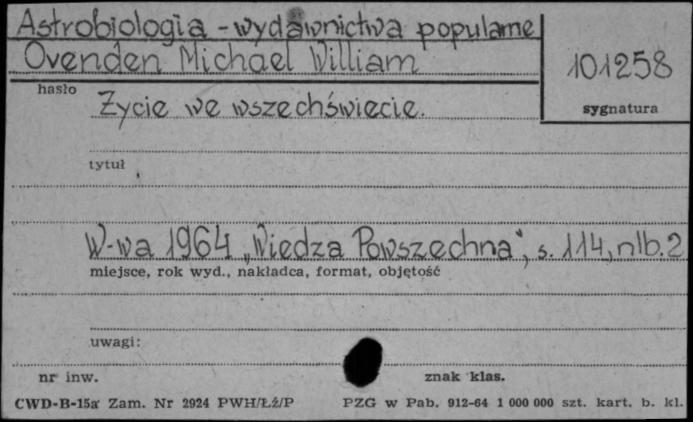 Astrobiologia - wydawnictwa popularne
Ovenden Michael William
101258
hasło
sygnatura
Życie we wszechświecie.
tytuł
W-wa 1964 „Wiedza Powszechna", s. 114, nlb. 2
miejsce, rok wyd., nakładca, format, objętość
uwagi:
nr inw. znak klas.
CWD-B-15a Zam. Nr 2924 PWH/Łź/P PZG w Pab. 912-64 1 000 000 szt. kart. b. kl.